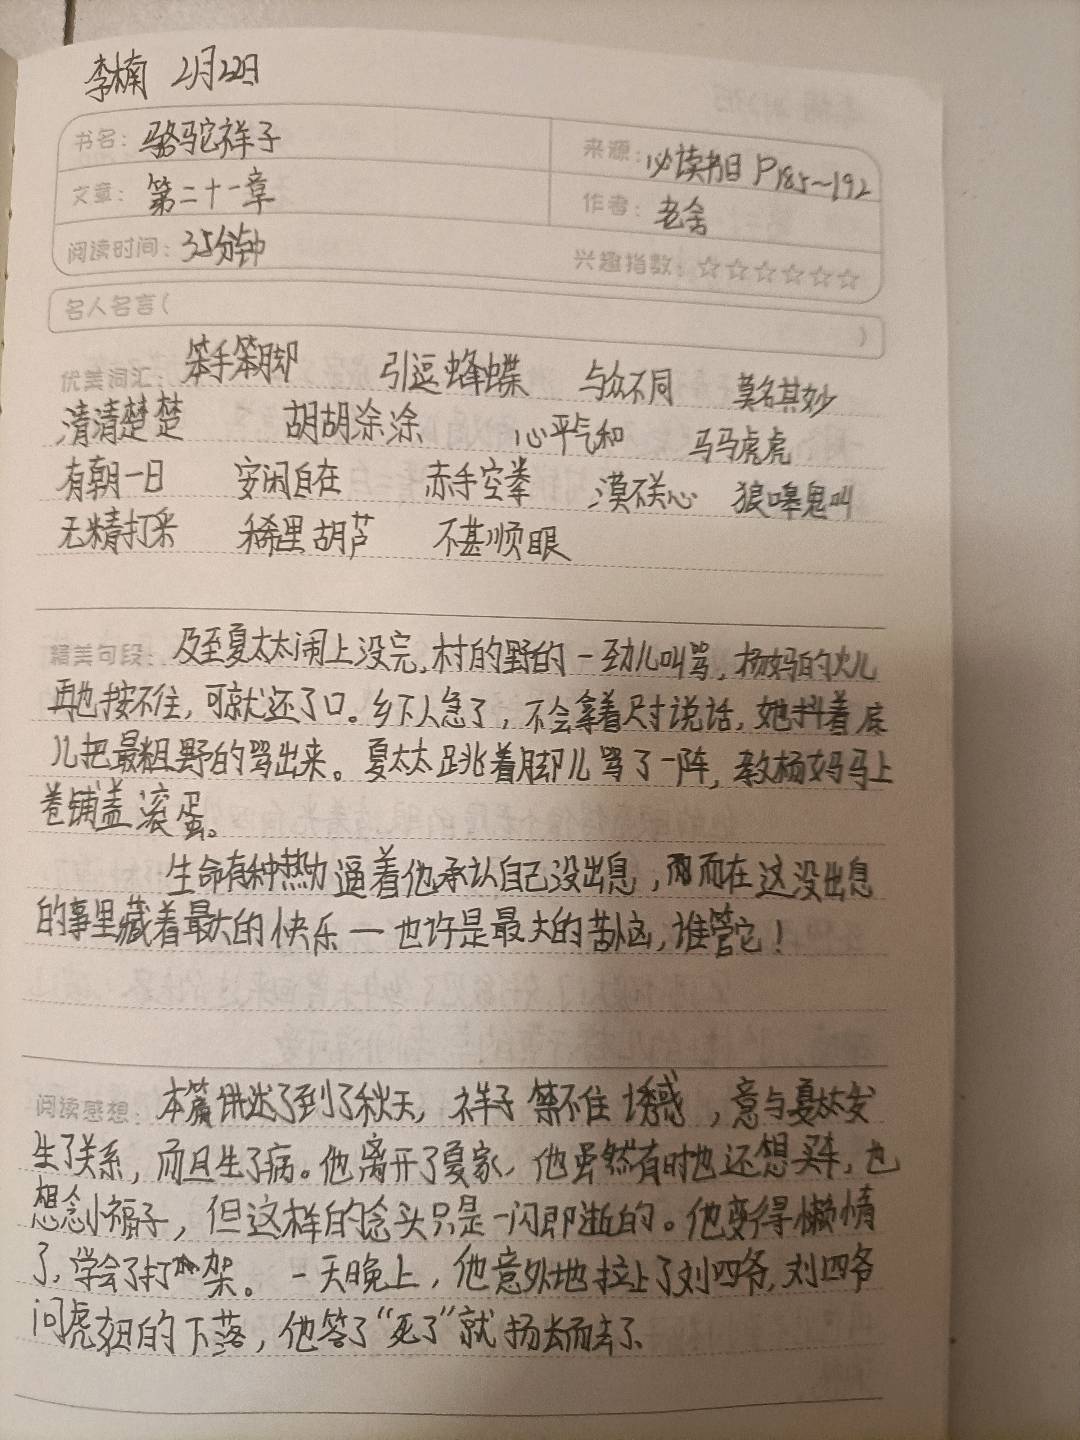 李楠 2月22日
书名：骆驼祥子 来源：必读书目 P185～192
文章：第二十一章 作者：老舍
阅读时间：35分钟 兴趣指数：☆☆☆☆☆☆
名人名言（ ）
优美词汇：笨手笨脚 引逗蜂蝶 与众不同 莫名其妙
清清楚楚 胡胡涂涂 心平气和 马马虎虎
有朝一日 安闲自在 赤手空拳 漠不关心 狼嗥鬼叫
无精打采 稀里胡芦 不甚顺眼
精美句段：及至夏太太闹上没完，村的野的一劲儿叫骂，杨妈的火儿
再也按不住，可就还了口。乡下人急了，不会拿着尺寸说话，她抖着底
儿把最粗野的骂出来。夏太太跳着脚儿骂了一阵，教杨妈马上
卷铺盖滚蛋。
生命有种热力逼着他承认自己没出息，而在这没出息
的事里藏着最大的快乐—也许是最大的苦恼，谁管它！
阅读感想：本篇讲述了到了秋天，祥子禁不住诱惑，意与夏太太发
生了关系，而且生了病。他离开了夏家，他虽然有时也还想买车，也
想念小福子，但这样的念头只是一闪即逝的。他变得懒惰
了，学会了打架。一天晚上，他意外地拉上了刘四爷，刘四爷
问虎妞的下落，他答了“死了”就扬长而去了、